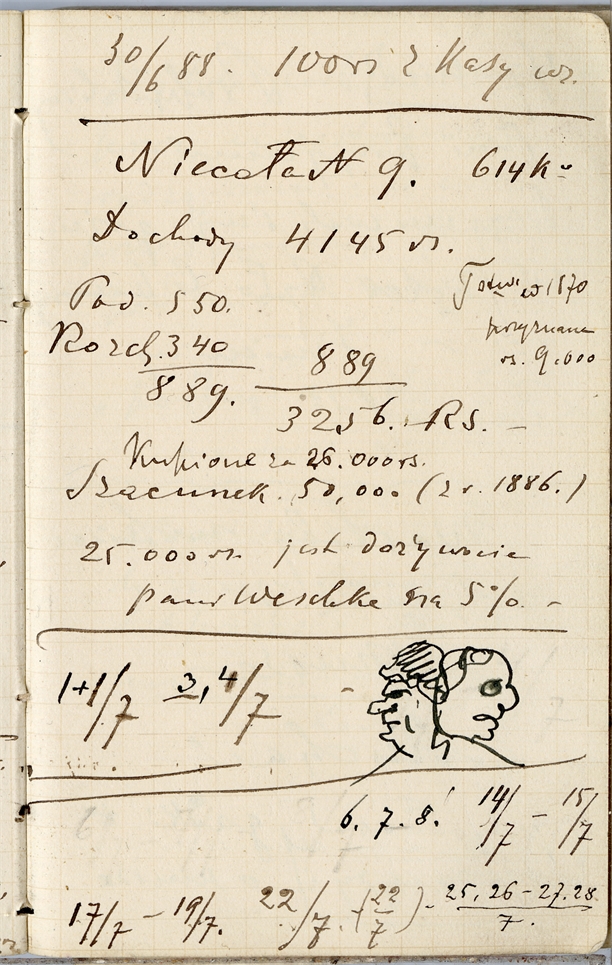 30/6 88. 100 rs z Kasy wz.
Niecała N 9. 614 K
Dochody 4145 rs.
Pod. 550.
Rozch. 340
889. 889
3256. Rs. -
w 1870
przyznane
rs. 9.000
Kupione za 26.000 rs.
Szacunek. 50,000 (z r. 1886.)
25.000 rs jest dożywocie
pani Weschke na 5%. -
1+1/7 3,4/7 -
6. 7. 8. 14/7 - 15/7
17/7 - 19/7. 22/7. (22/7) - 25. 26 - 27. 28 / 7.